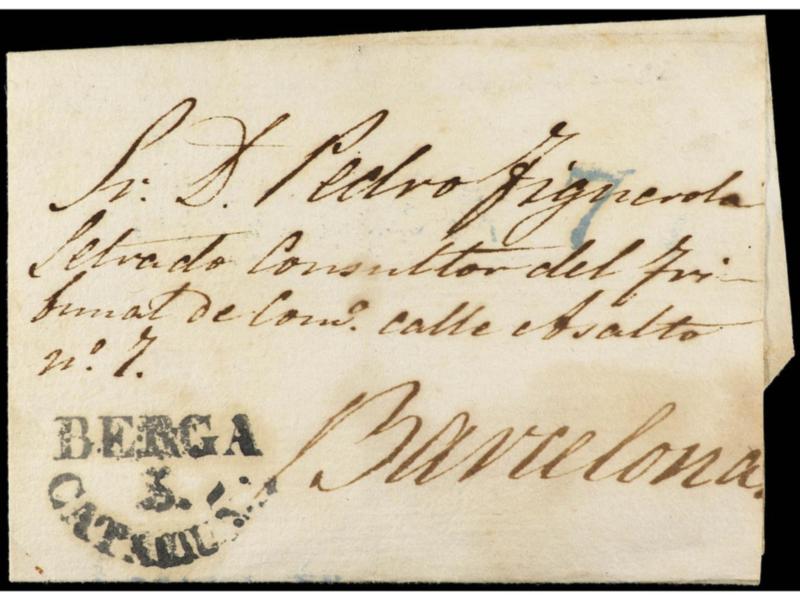 Sr. D. Pedro Figuerola
7
Letrado Consultor del Tri-
bunal de Com.º calle Asalto
n.º 7.
Barcelona.
BERGA
3.
CATALUÑA